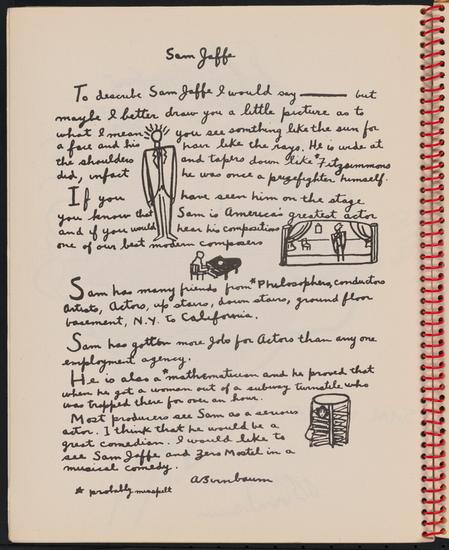 Sam Jaffe
To describe Sam Jaffe I would say ——— but
maybe I better draw you a little picture as to
what I mean you see somthing like the sun for
a face and his hair like the rays. He is wide at
the shoulders and tapers down like *Fitzsimmons
did, infact he was once a prizefighter himself.
If you have seen him on the stage
you know that Sam is America's greatest actor
and if you would hear his compositions
one of our best modern composers
Sam has many friends from *Philosophers, conductors
Artists, Actors, up stairs, down stairs, ground floor
basement, N.Y. to California.
Sam has gotten more Jobs for Actors than any one
employment agency.
He is also a *mathematician and he proved that
when he got a woman out of a subway turnstile who
was trapped there for over an hour.
Most producers see Sam as a serious
actor. I think that he would be a
great comedian. I would like to
see Sam Jaffe and Zero Mostel in a
musical comedy.
ABirnbaum
* probably misspelt